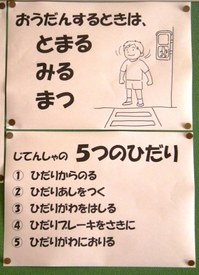 おうだんするときは、
とまる
みる
まつ
じてんしゃの 5つのひだり
① ひだりからのる
② ひだりあしをつく
③ ひだりがわをはしる
④ ひだりブレーキをさきに
⑤ ひだりがわにおりる